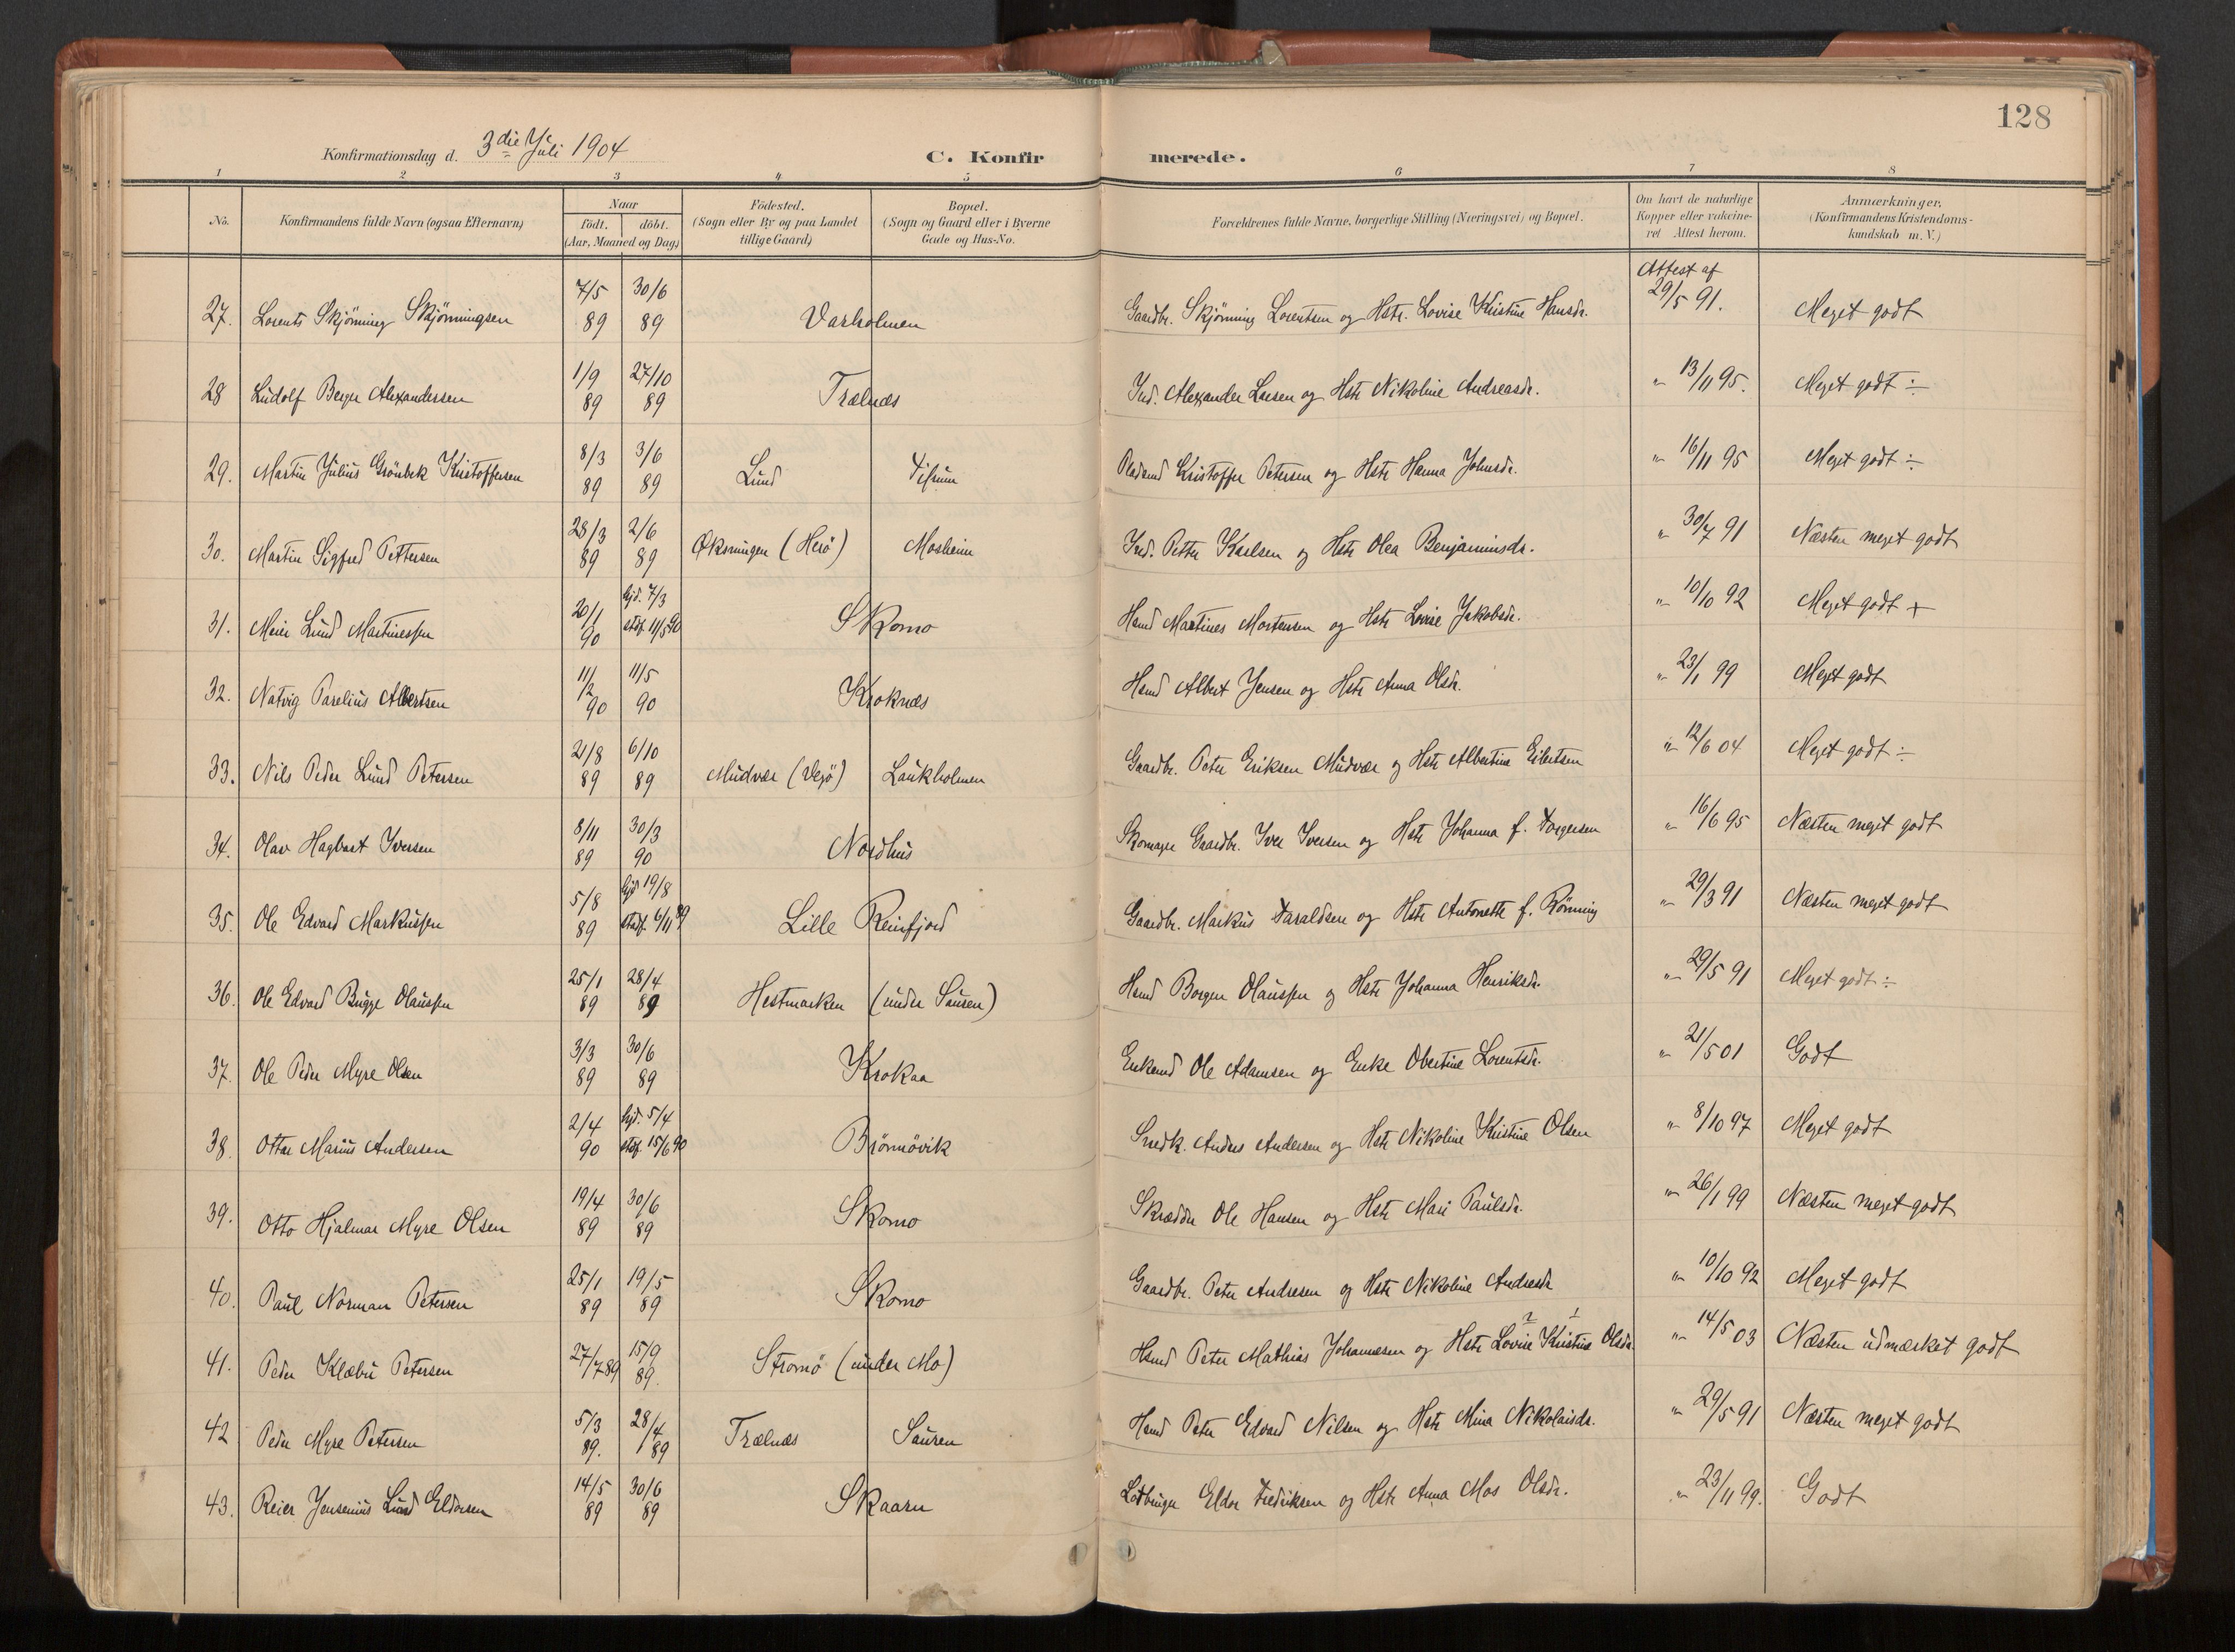 128
Konfirmationsdag d. 3die Juli 1904
C. Konfirmerede.
1 2 3 4 5 6 7 8
No. Konfirmandens fulde Navn (ogsaa Efternavn) Naar födt. döbt. (Aar, Maaned og Dag) Födested. (Sogn eller By og paa Landet tillige Gaard) Bopæl. (Sogn og Gaard eller i Byerne Gade og Hus-No. Forældrenes fulde Navne, borgerlige Stilling (Næringsvei) og Bopæl. Om havt de naturlige Kopper eller vakcineret Attest herom. Anmærkninger. (Konfirmandens Kristendomskundskab m. V.)
27. Lorents Skjönning Skjönningsen 7/5 89 30/6 89 Varholmen Gaardbr. Skjönning Lorentsen og Hstr. Lovise Kristine Hansdr. Attest af 29/5 91. Meget godt
28 Ludolf Berger Alexandersen 1/9 89 27/10 89 Trælnæs Ind. Alexander Larsen og Hstr Nikoline Andreasdr. " 13/11 95. Meget godt ÷
29. Martin Julius Grönbek Kristoffersen 8/3 89 3/6 89 Lund Kristoffer Petersen og Hstr Hanna Johnsdr. " 16/11 95 Meget godt ÷
30. Martin Sigfred Pettersen 28/3 89 2/6 89 Øksningen (Herö) Mosheim Ind. Petter Karlsen og Hstr Olea Benjaminsdr. " 30/7 91 Næsten meget godt
31. Meier Lund Martinessen 20/1 90 hjd. 7/3 stadf. 11/5 90 Skomo Hsmd Martines Mortensen og Hstr Lovise Jakobsdr. " 10/10 92 Meget godt +
32. Natvig Parelius Albertsen 11/2 90 11/5 90 Kroknæs Hsmd Albert Jensen og Hstr Anna Olsdr. " 23/1 99 Meget godt
33. Nils Peder Lund Petersen 21/8 89 6/10 89 Mudvær (Vegö) Laukholmen Gaardbr. Peter Eriksen Mudvær og Hstr Albertine Eilertsen " 12/6 04 Meget godt ÷
34. Olav Hagbart Iversen 8/11 89 30/3 90 Nordhus Skomager Gaardbr. Iver Iversen og Hstr Johanna f. Torgersen " 16/6 95 Næsten meget godt
35. Ole Edvard Markussen 5/8 89 hjd 19/8 stadf. 6/11 89 Lille Reinfjord Gaardbr. Markus Haraldsen og Hstr Antonette f. Rönning " 29/3 91 Næsten meget godt
36. Ole Edvard Bugge Olaussen 25/1 89 28/4 89 Hestmarken (under Sauren) Hsmd Borgen Olaussen og Hstr Johanna Henriksdr. " 29/5 91 Meget godt ÷
37. Ole Peder Myre Olsen 3/3 89 30/6 89 Krokaa Enkemd Ole Adamsen og Enke Obertine Lorentsdr. " 21/5 01 Godt
38. Ottar Marius Andersen 2/4 90 hjd. 5/4 stadf. 15/6 90 Brönnövik Snedk. Anders Andersen og Hstr Nikoline Kristine Olsen " 8/10 97 Meget godt
39. Otto Hjalmar Myre Olsen 19/4 89 30/6 89 Skomo Skrædder Ole Hansen og Hstr Mari Paulsdr. " 26/1 99 Næsten meget godt
40. Paul Norman Petersen 25/1 89 19/5 89 Skomo Gaardbr. Peter Andresen og Hstr Nikoline Andresdr " 10/10 92 Meget godt
41. Peder Klæbu Petersen 27/7 89 15/9 89. Strömö (under Mo) Hsmd Peter Mathias Johannesen og Hstr Lovise 2 Kristine 1 Olsdr. " 14/5 03 Næsten udmærket godt
42 Peder Myre Petersen 5/3 89. 28/4 89 Trælnæs Sauren Hsmd Peter Edvard Nilsen og Hstr Mina Nikolaisdr. " 29/5 91 Næsten meget godt
43. Reier Jensenius Lund Eldorsen 14/5 89 30/6 89 Skaaru Eldor Fredriksen og Hstr Anna Mos Olsdr. " 23/11 99. Godt